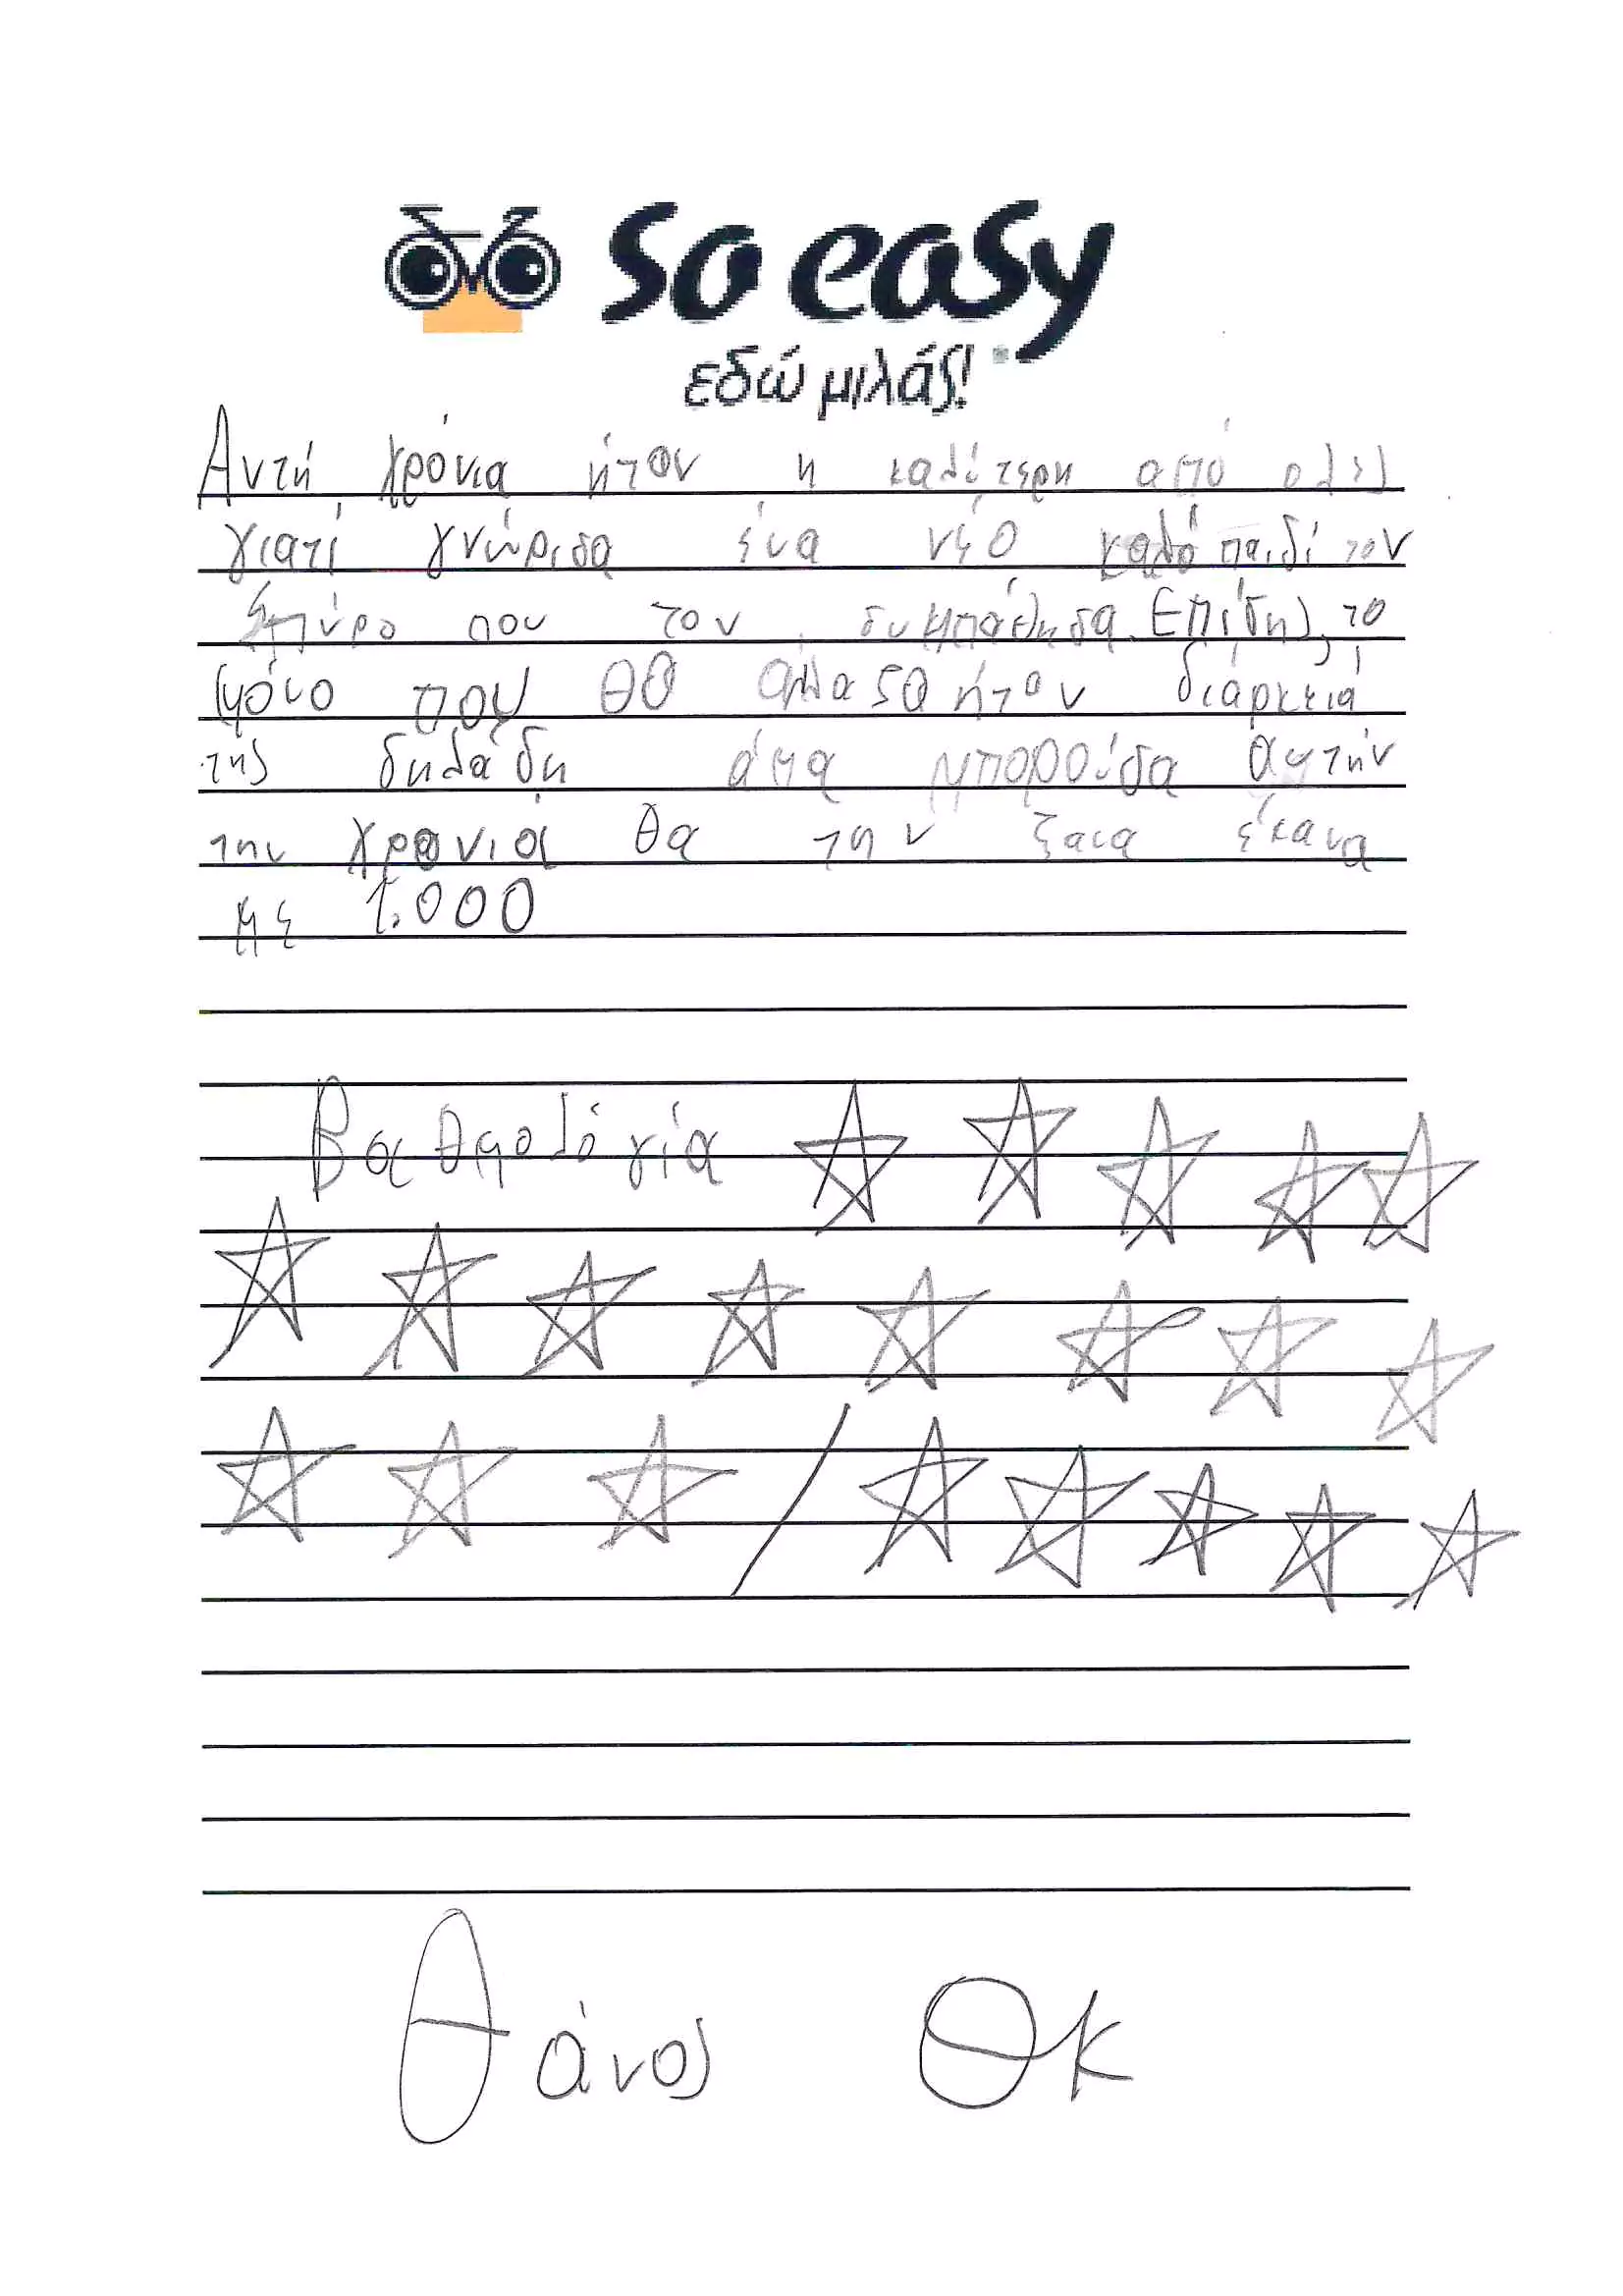 so easy
εδώ μιλάς!
Αυτή χρόνια ήταν η καλύτερη από ολες
γιατί γνώρισα ένα νέο καλό παιδί τον
Σπύρο που τον συμπάθησα. Επίσης, το
μόνο που θα άλλαζα ήταν διάρκειά
της δηλάδη άμα μπορούσα αυτήν
την χρονιά θα την ξανα έκανα
με 1.000
Βαθμολόγία
Θάνος ΘΚ